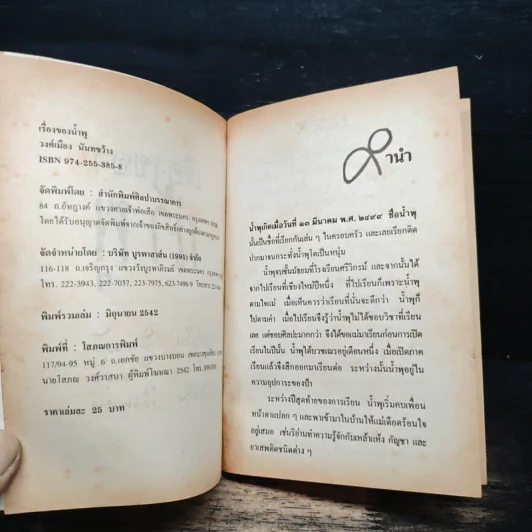 เรื่องของน้ำพุ
วงศ์เมือง นันทขว้าง
ISBN 974-255-385-8
จัดพิมพ์โดย : สำนักพิมพ์ศิลปาบรรณาคาร
84 ถ.อัษฎางค์ แขวงศาลเจ้าพ่อเสือ เขตพระนคร กรุงเทพฯ
โดยได้รับอนุญาตจัดพิมพ์จากเจ้าของลิขสิทธิ์อย่างถูกต้องตามกฎหมาย
จัดจำหน่ายโดย : บริษัท บูรพาสาส์น (1991) จำกัด
116-118 ถ.เจริญกรุง แขวงวังบูรพาภิรมย์ เขตพระนคร กรุงเทพฯ
โทร. 222-3943, 222-7037, 223-7975, 623-7498-9
พิมพ์รวมเล่ม : มิถุนายน 2542
พิมพ์ที่ : โสภณการพิมพ์
117/94-95 หมู่ 6 ถ.เอกชัย แขวงบางบอน
นายโสภณ วงศ์วาสนา ผู้พิมพ์โฆษณา 2542
ราคาเล่มละ 25 บาท
คำนำ
น้ำพุเกิดเมื่อวันที่ ๑๓ มีนาคม พ.ศ. ๒๔๙๙ ชื่อน้ำพุ
นั้นเป็นชื่อที่เรียกกันเล่น ๆ ในครอบครัว และเลยเรียกติด
ปากมาจนกระทั่งน้ำพุโตเป็นหนุ่ม
น้ำพุจบชั้นมัธยมที่โรงเรียนศรีวิกรม์ และจากนั้นได้
จากไปเรียนที่เชียงใหม่ปีหนึ่ง ที่ไปเรียนก็เพราะน้ำพุ
ตามใจแม่ เมื่อเห็นควรว่าเรียนที่นั่นจะดีกว่า น้ำพุก็
ไปตามคำ เมื่อไปเรียนจึงรู้ว่าน้ำพุไม่ได้ชอบวิชาที่เรียน
เลย แต่ชอบศิลปะมากกว่า จึงได้ขอแม่มาเรียนก่อนการเปิด
เรียนในปีนั้น น้ำพุได้บวชเณรอยู่เดือนหนึ่ง เมื่อเปิดภาค
เรียนแล้วจึงสึกออกมาเรียนต่อ ระหว่างนั้นน้ำพุอยู่ใน
ความอุปการะของป้า
ระหว่างปีสุดท้ายของการเรียน น้ำพุเริ่มคบเพื่อน
หน้าตาแปลก ๆ และพาเข้ามาในบ้านให้แม่เดือดร้อนใจ
อยู่เสมอ เช่นริอ่านทำความรู้จักกับเหล้าแห้ง กัญชา และ
ยาเสพติดชนิดต่าง ๆ